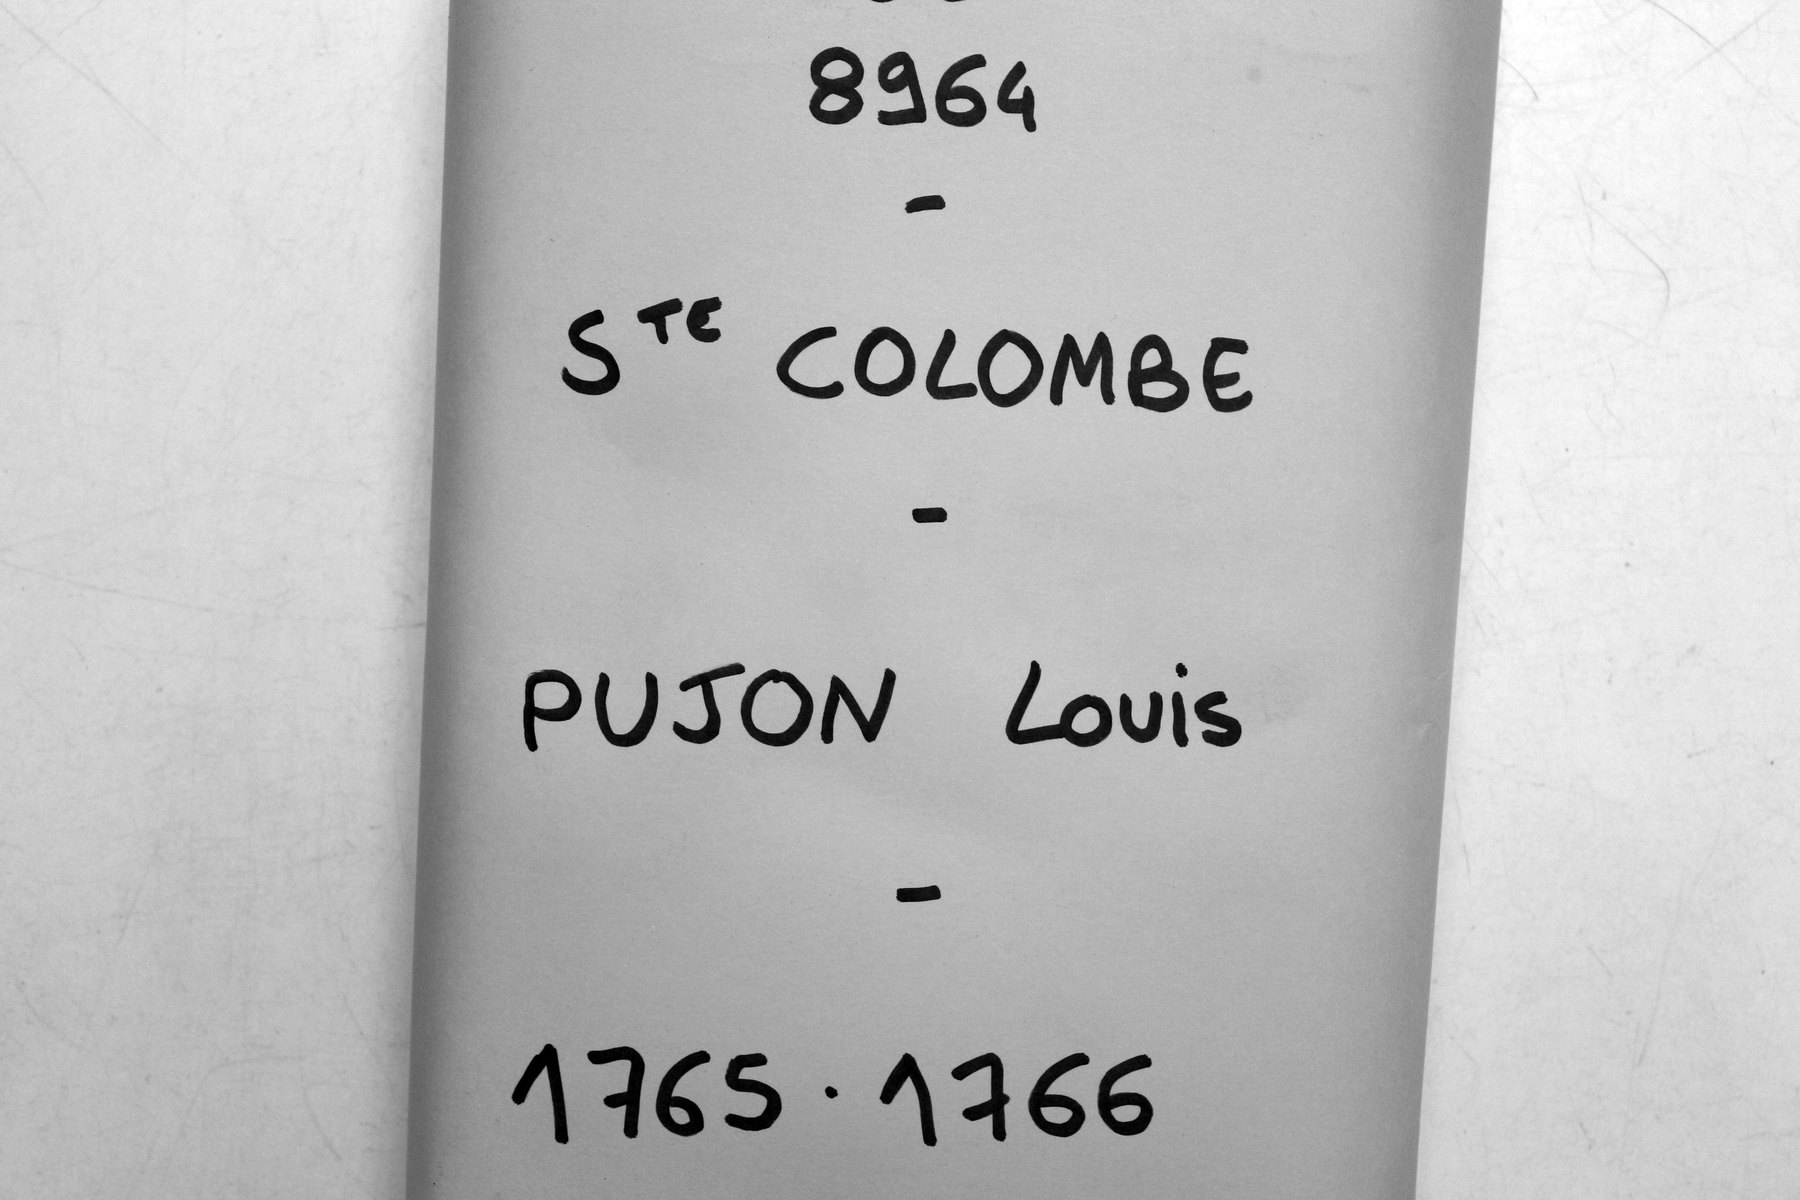 8964
-
Sᵀᴱ COLOMBE
-
PUJON Louis
-
1765 · 1766